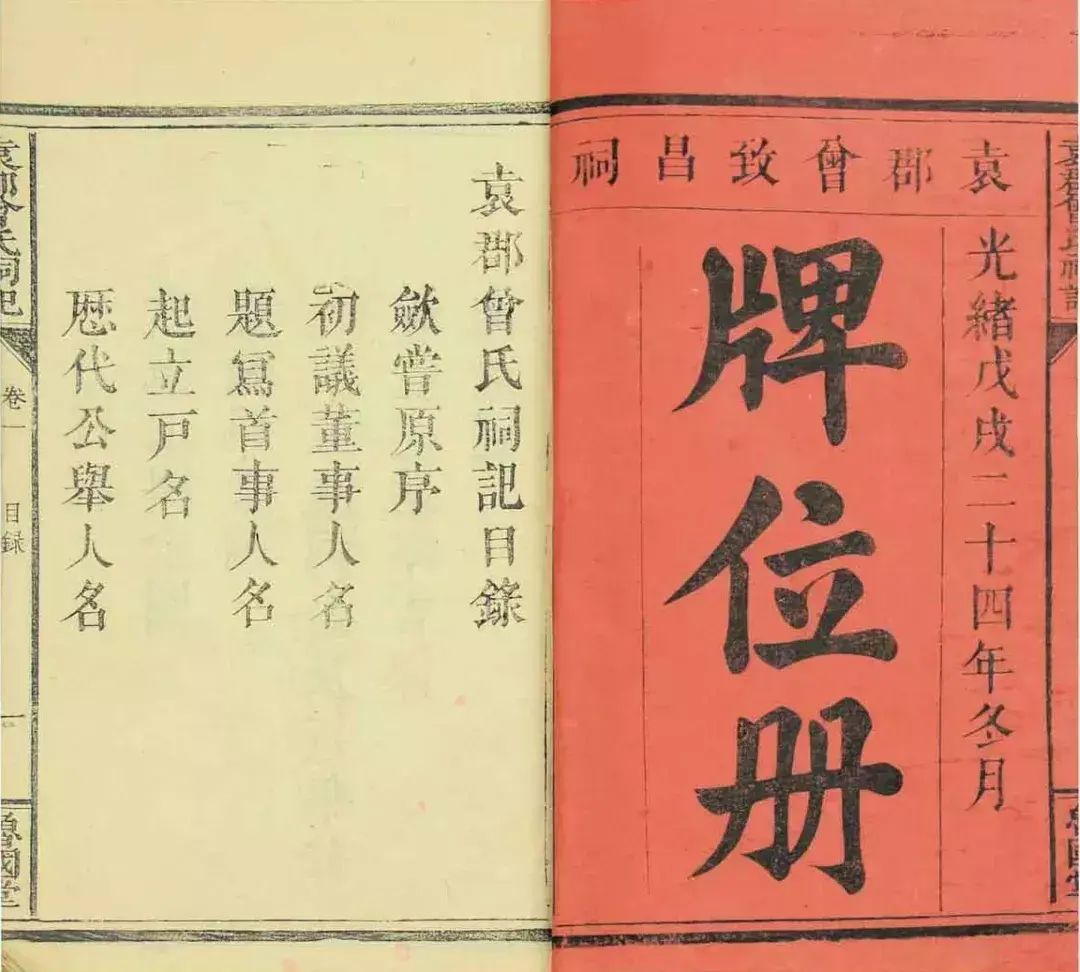 袁郡曾致昌祠
光緒戊戌二十四年冬月
牌位册
袁郡曾氏祠記目錄
歛嘗原序
初議董事人名
題寫首事人名
起立戸名
歷代公舉人名
袁郡曾氏祠記
卷一
目録
一
魯國堂